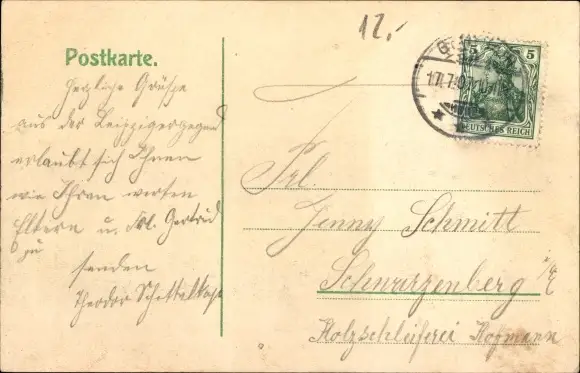 12,-
Postkarte.
5 5
DEUTSCHES REICH
Herzliche Grüsse
aus der Leipzigergegend
erlaubt sich Ihnen
wie Ihren werten
Eltern u. Frl. Gertrud
zu
senden
Theodor
Frl.
Jenny Schmitt
Schwarzenberg i/E
Holzschleiferei Hofmann